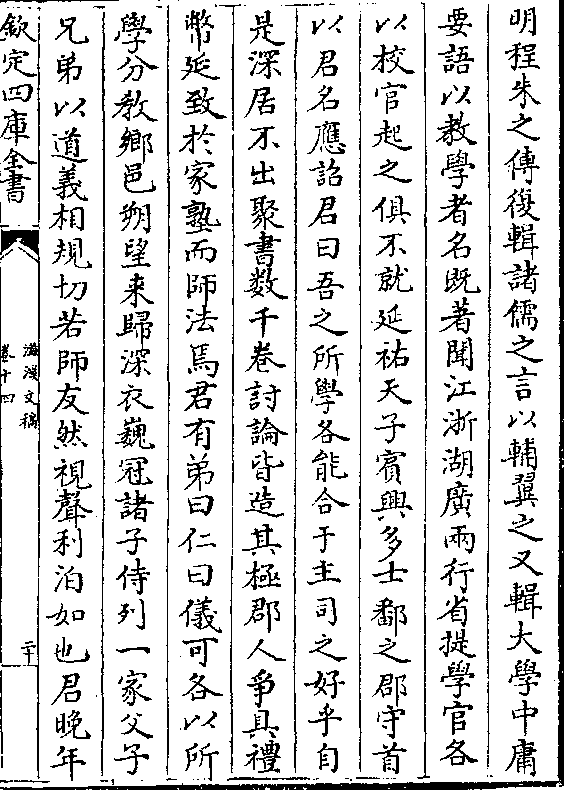 明程朱之傳復輯諸儒之言以輔翼之又輯大學中庸
要語以教學者名既著聞江浙湖廣兩行省提學官各
以校官起之俱不就延祐天子賓興多士鄱之郡守首
以君名應詔君曰吾之所學各能合于主司之好乎自
是深居不出聚書數千卷討論皆造其極郡人爭具禮
幣延致於家塾而師法焉君有弟曰仁曰儀可各以所
學分教鄉邑朔望来歸深衣巍冠諸子侍列一家父子
兄弟以道義相規切若師友然視聲利泊如也君晚年
欽定四庫全書
卷十四
二十